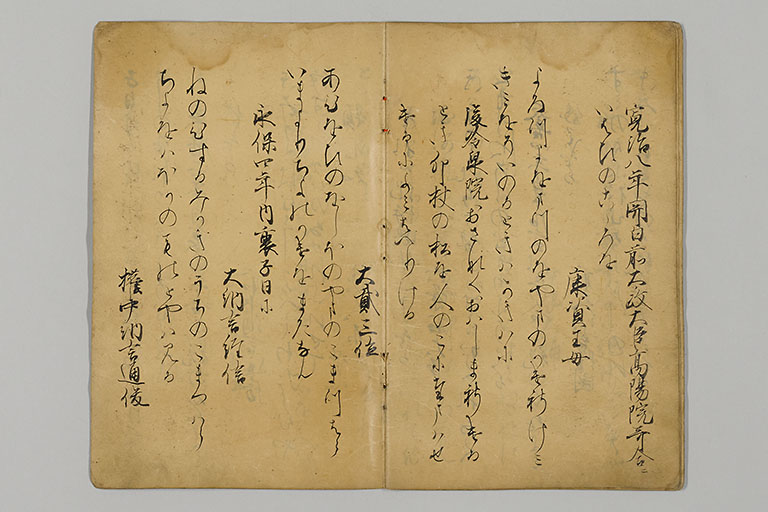 寛治八年関白前太政大臣高陽院哥合に
いはひのこゝろを
康資王母
よろつよをまつのをやまのかけしけみ
きみをそいのるときはかきはに
後冷泉院おさなくおはしましける
とき卯杖の松を人のこにたまはせ
けるによみはへりける
大貳三位
あひをひのをしほのやまのこまつはら
いまよりちよのかけをまたなん
永保四年内裏子日に
大納言経信
ねのひするみかきのうちのこまつはら
ちよをはほかのものとやは見る
権中納言通俊